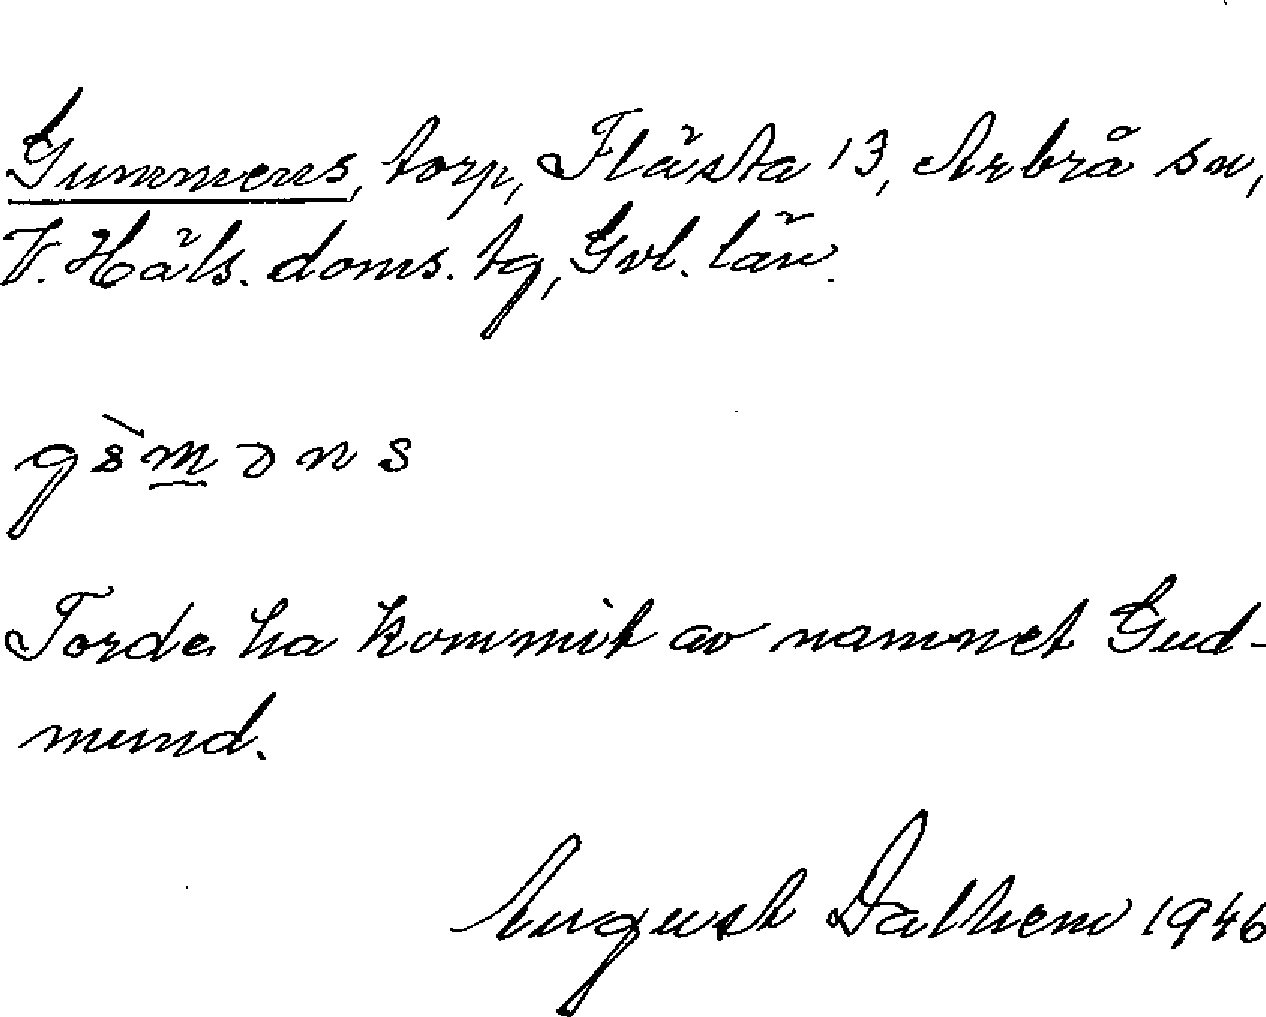 Gummens, torp, Flästa 13, Arbrå sn,
V. Häls. doms. tg, Gvl. län.
Torde ha kommit av namnet Gud-
mund.
August Dalhem 1946